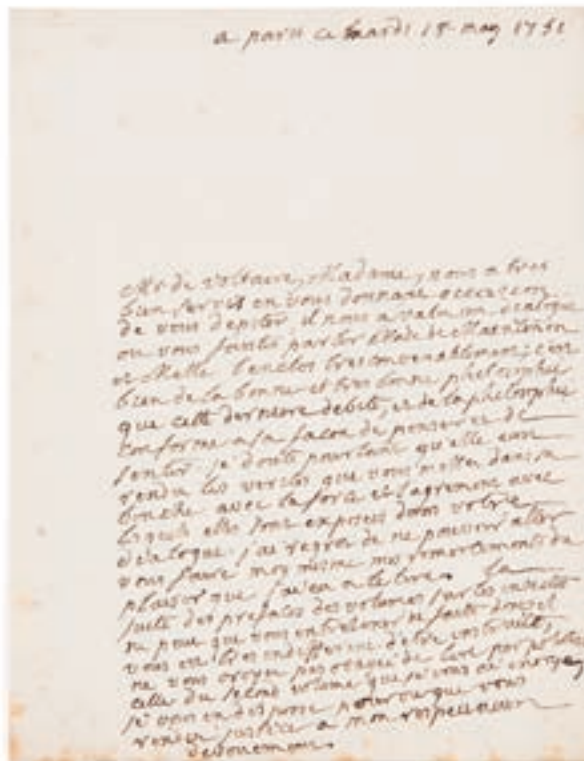 a paris ce mardi 18 may 1751
Mr de voltaire, Madame, nous a tres
bien servis en vous donnant occasion
de vous depiter, il nous a valu un dialogue
ou vous faites parler Made de Maintenon
et Melle lenclos tres convenablement; c'est
bien de la bonne et tres bonne philosophie
que cette derniere debite, et de la philosophie
conforme a sa façon de penser et de
sentir. je doute pourtant qu'elle eut
rendu les verites que vous mettes dans sa
bouche avec la force et l'agrement avec
lesquels elles sont exposees dans votre
dialogue. j'ai regret de ne pouvoir aller
vous faire moy mesme mes remerciements du
plaisir que j'ai eu a le lire. la
suite des prefaces des volumes sur les insectes
ne peut que vous
vous en indifferent d'etre instruite,
ne vous croyes pas obligee de lire
celle du second volume que je vous ai envoyé,
je vous en dispense pourvu que vous
rendies justice a mon respectueux
devouement.